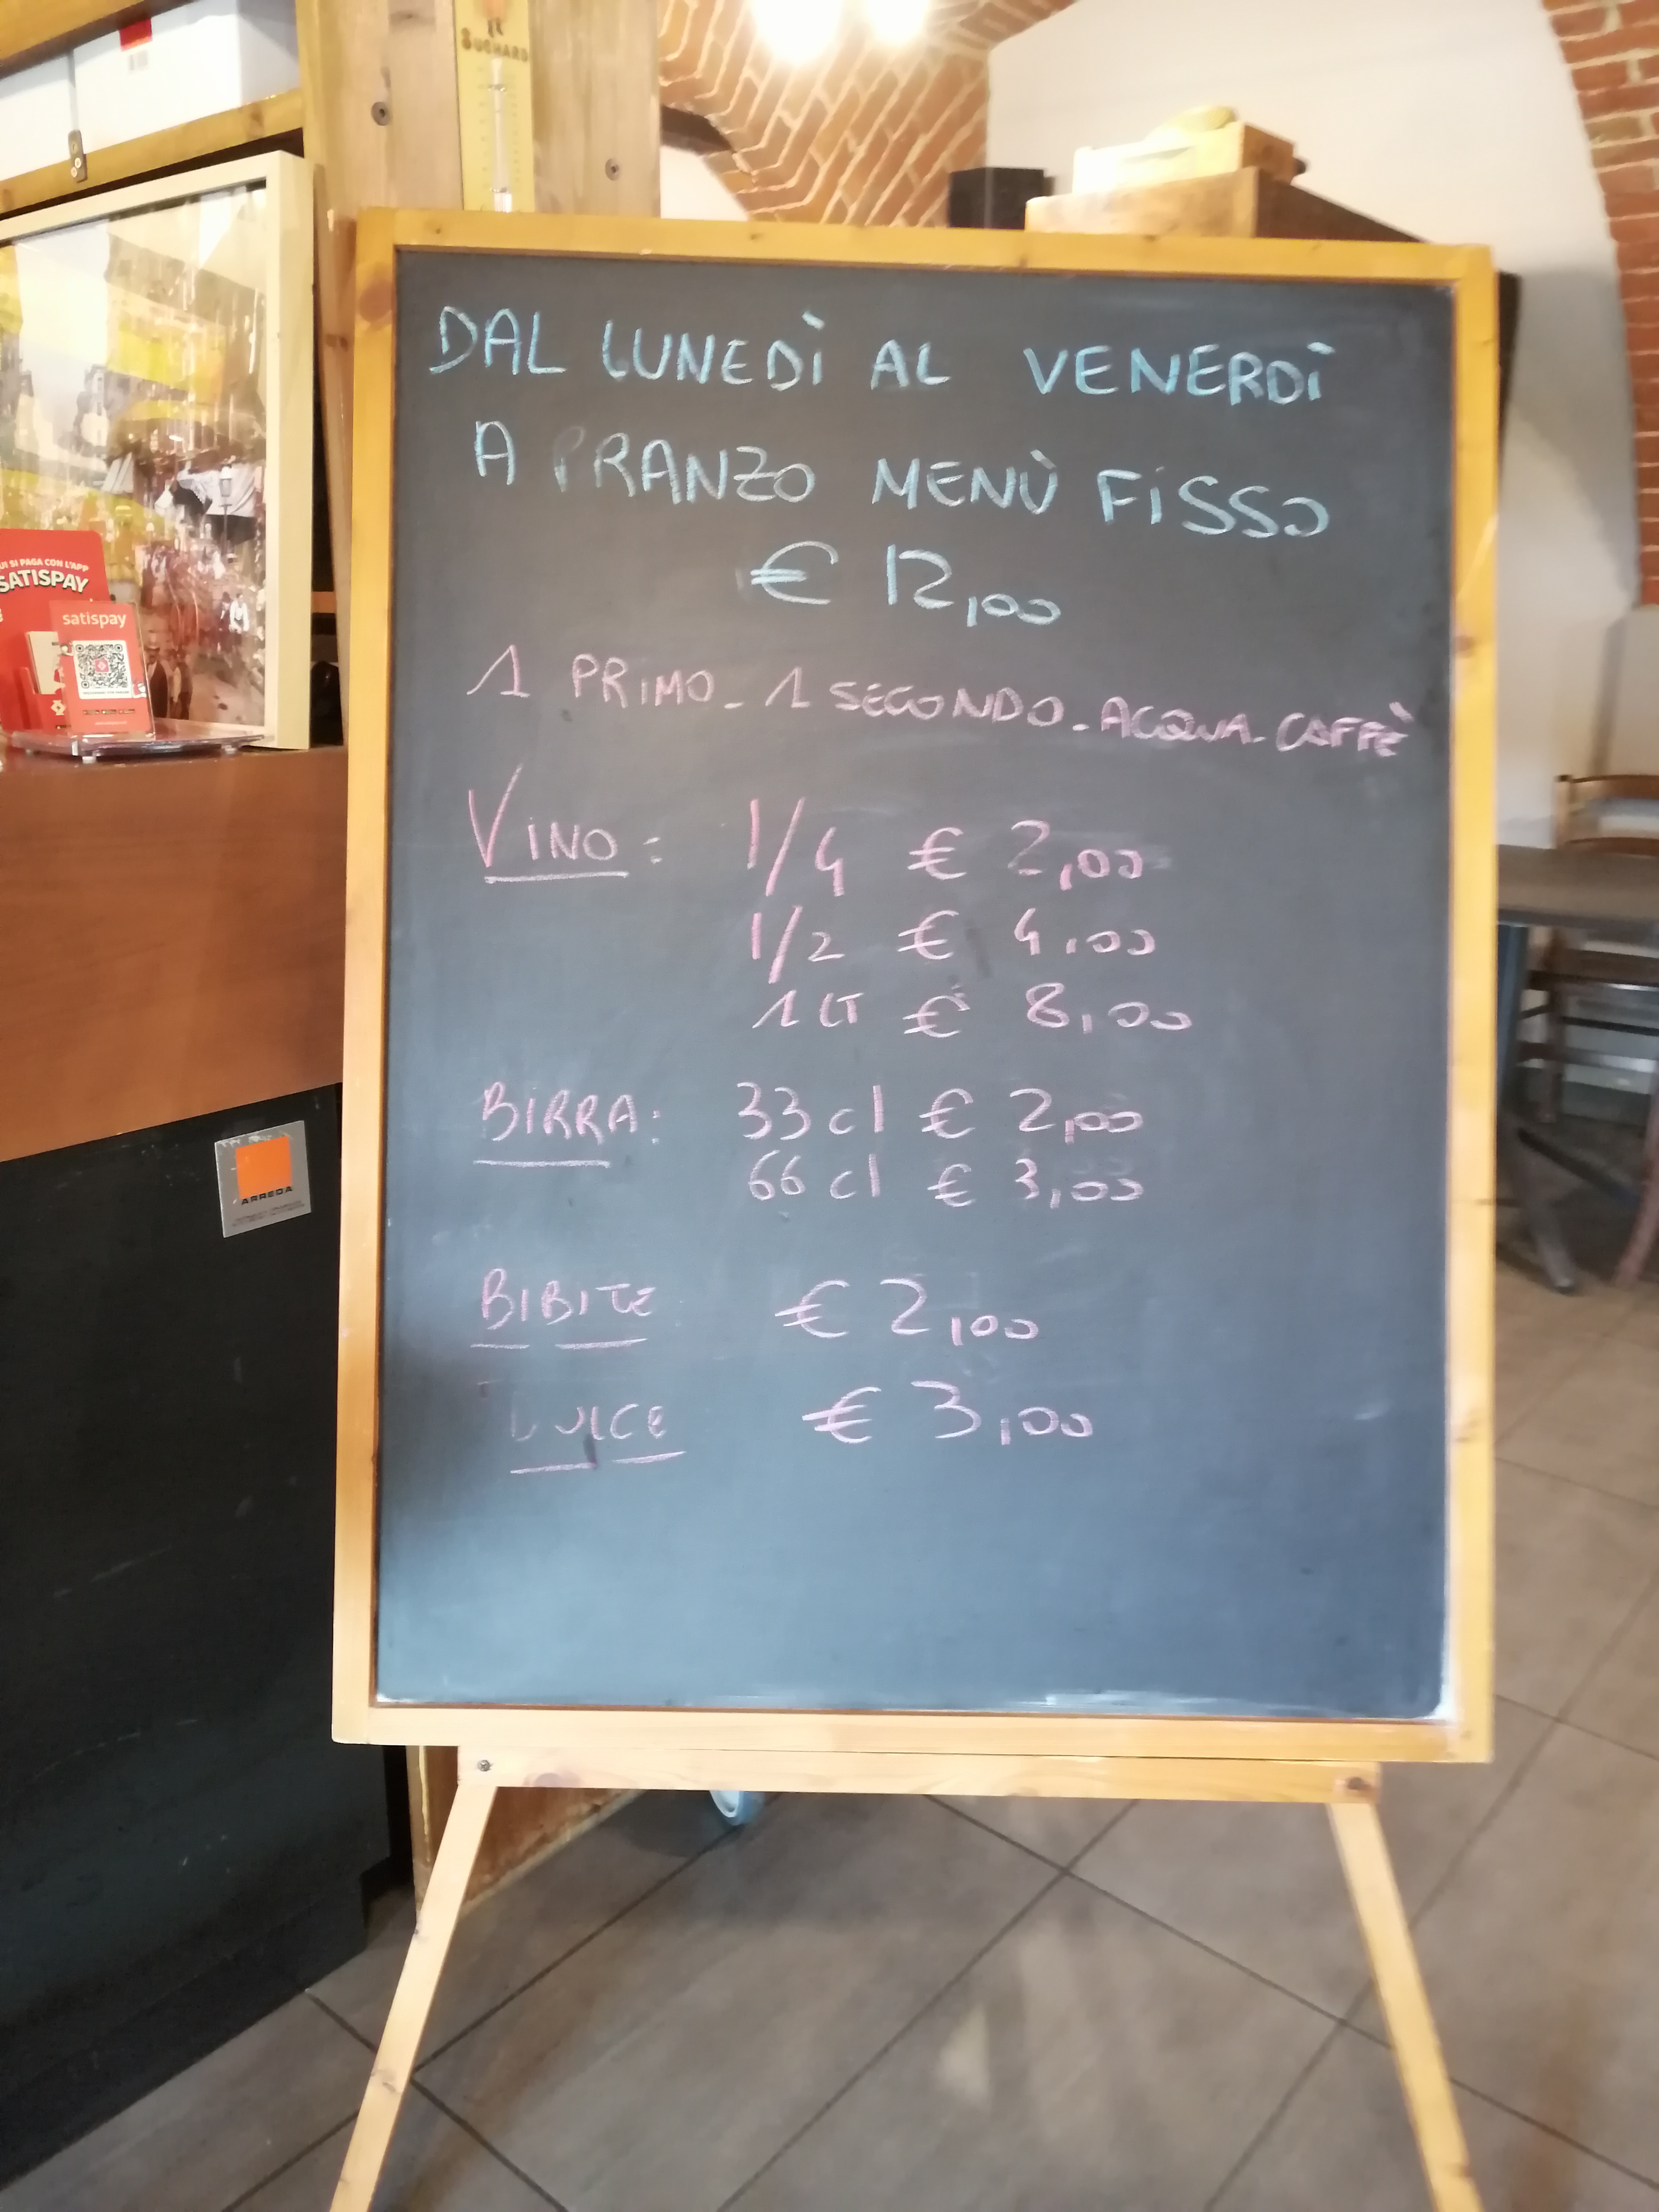 SUCHARD
DAL LUNEDÌ AL VENERDÌ
A PRANZO MENÙ FISSO
€ 12,00
1 PRIMO - 1 SECONDO - ACQUA - CAFFÈ
VINO: 1/4 € 2,00
1/2 € 4,00
1 LT € 8,00
BIRRA: 33 cl € 2,00
66 cl € 3,00
BIBITE € 2,00
DOLCE € 3,00
UI SI PAGA CON L'APP
SATISPAY
satispay
ARREDA